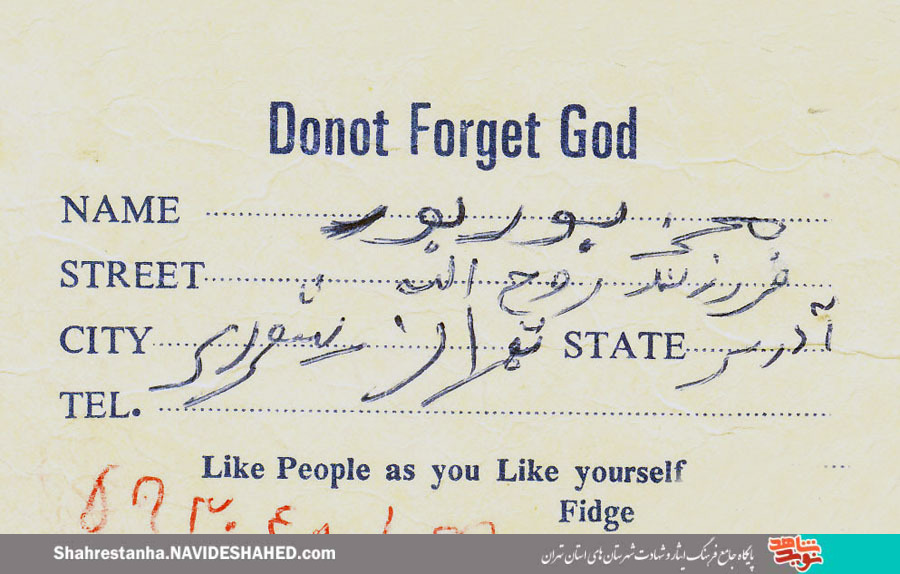 Donot Forget God
NAME پور پور
STREET فرزند روح الله
CITY تهران STATE آدرس
TEL.
Like People as you Like yourself
Fidge
Shahrestanha.NAVIDESHAHED.com پایگاه جامع فرهنگ ایثار و شهادت شهرستان های استان تهران
نوید شاهد